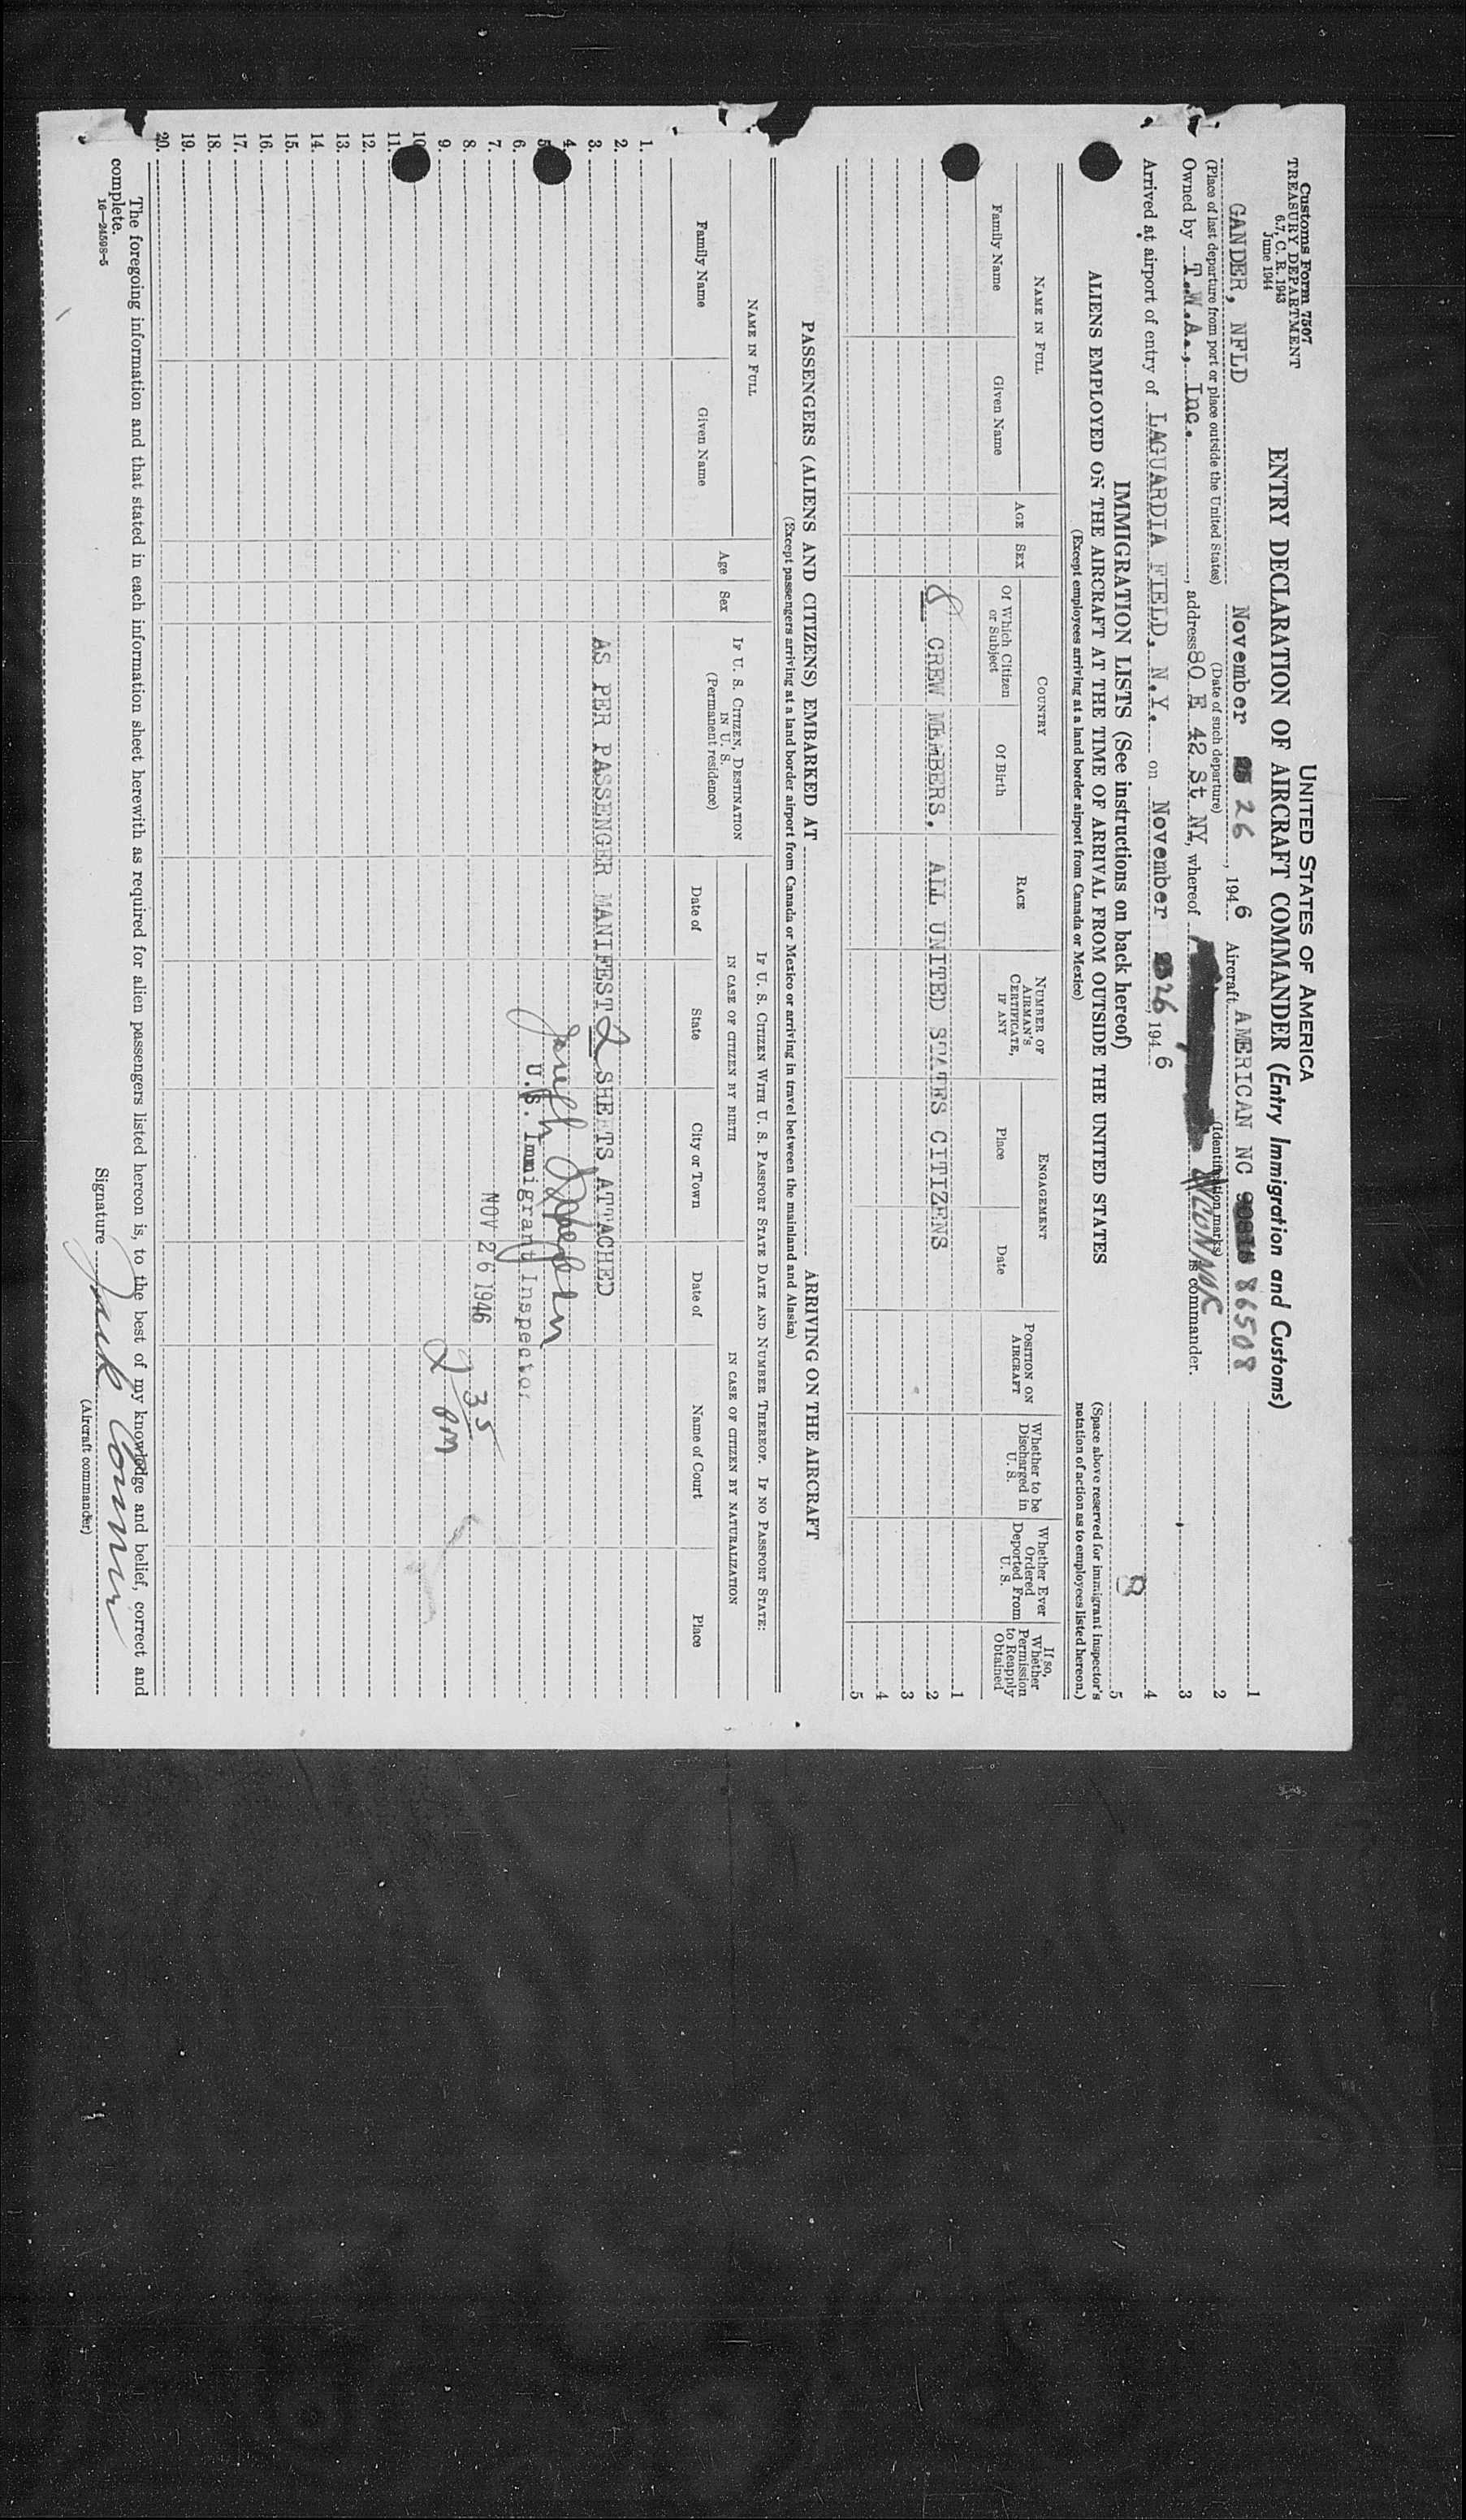 Customs Form 7507
TREASURY DEPARTMENT
6.7, C. R. 1943
June 1944
UNITED STATES OF AMERICA
ENTRY DECLARATION OF AIRCRAFT COMMANDER (Entry Immigration and Customs)
GANDER, NFLD November 26, 1946 Aircraft AMERICAN NC 86508
(Place of last departure from port or place outside the United States) (Date of such departure) (Identification marks)
Owned by T.W.A., Inc., address 80 E 42 St NY, whereof CONNOR is commander.
Arrived at airport of entry of LAGUARDIA FIELD, N.Y. on November 26, 1946
1
2
3
4
5
IMMIGRATION LISTS (See instructions on back hereof)
(Space above reserved for immigrant inspector's notation of action as to employees listed hereon.)
ALIENS EMPLOYED ON THE AIRCRAFT AT THE TIME OF ARRIVAL FROM OUTSIDE THE UNITED STATES
(Except employees arriving at a land border airport from Canada or Mexico)
NAME IN FULL
Family Name
Given Name
AGE
SEX
COUNTRY
Of Which Citizen or Subject
Of Birth
RACE
NUMBER OF AIRMAN'S CERTIFICATE, IF ANY
ENGAGEMENT
Place
Date
POSITION ON AIRCRAFT
Whether to be Discharged in U. S.
Whether Ever Ordered Deported From U. S.
If so, Whether Permission to Reapply Obtained
1
8 CREW MEMBERS. ALL UNITED STATES CITIZENS 2
3
4
5
PASSENGERS (ALIENS AND CITIZENS) EMBARKED AT ARRIVING ON THE AIRCRAFT
(Except passengers arriving at a land border airport from Canada or Mexico or arriving in travel between the mainland and Alaska)
NAME IN FULL
Family Name
Given Name
Age
Sex
IF U. S. CITIZEN, DESTINATION IN U. S.
(Permanent residence)
IF U. S. CITIZEN WITH U. S. PASSPORT STATE DATE AND NUMBER THEREOF. IF NO PASSPORT STATE:
IN CASE OF CITIZEN BY BIRTH
Date of
State
City or Town
IN CASE OF CITIZEN BY NATURALIZATION
Date of
Name of Court
Place
1.
2.
3. AS PER PASSENGER MANIFEST 2 SHEETS ATTACHED
4.
5. Joseph
6. U.S. Immigrant Inspector
7. NOV 26 1946
8. 35
9. 2 PM
10.
11.
12.
13.
14.
15.
16.
17.
18.
19.
20.
The foregoing information and that stated in each information sheet herewith as required for alien passengers listed hereon is, to the best of my knowledge and belief, correct and
complete.
16—24598-5
Signature Jack Connor
(Aircraft commander)